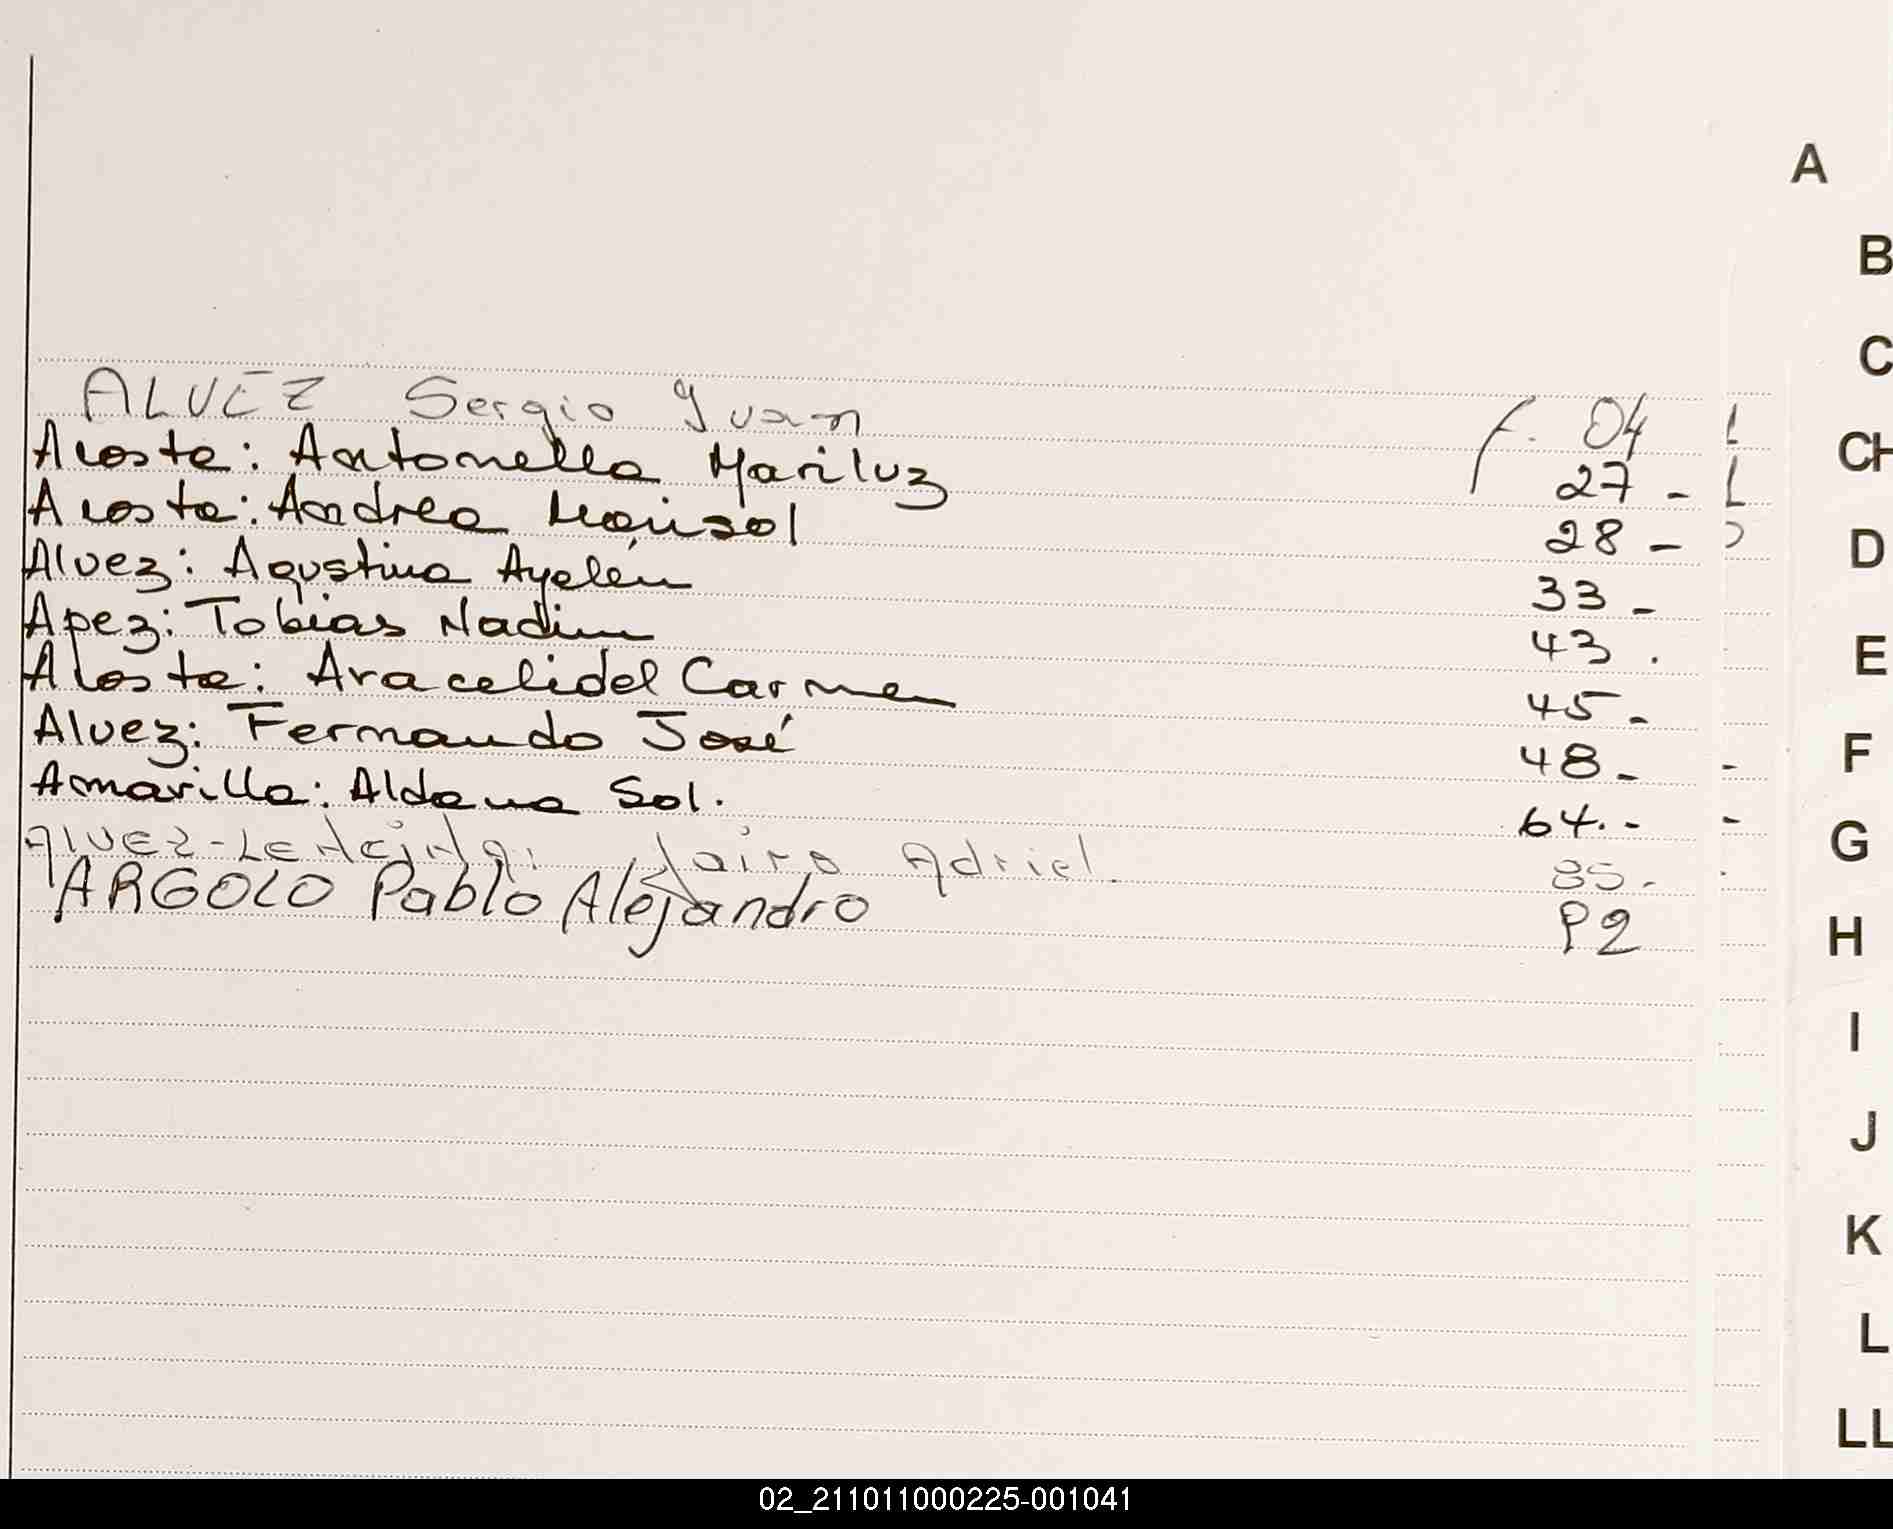 A
B
C
ALVEZ Sergio Yvan F. 04
Acosta: Antonella Mariluz 27 -
CH
Acosta: Andrea Marisol 28 -
D
Alvez: Agustina Ayelén 33 -
Apez: Tobias Nadim 43 .
E
Acosta: Araceli del Carmen 45 -
Alvez: Fernando José 48 -
F
Amarilla: Aldana Sol. 64. -
G
Alvez - Jairo Adriel. 85 -
ARGOLO Pablo Alejandro P2
H
I
J
K
L
LL
02_211011000225-001041